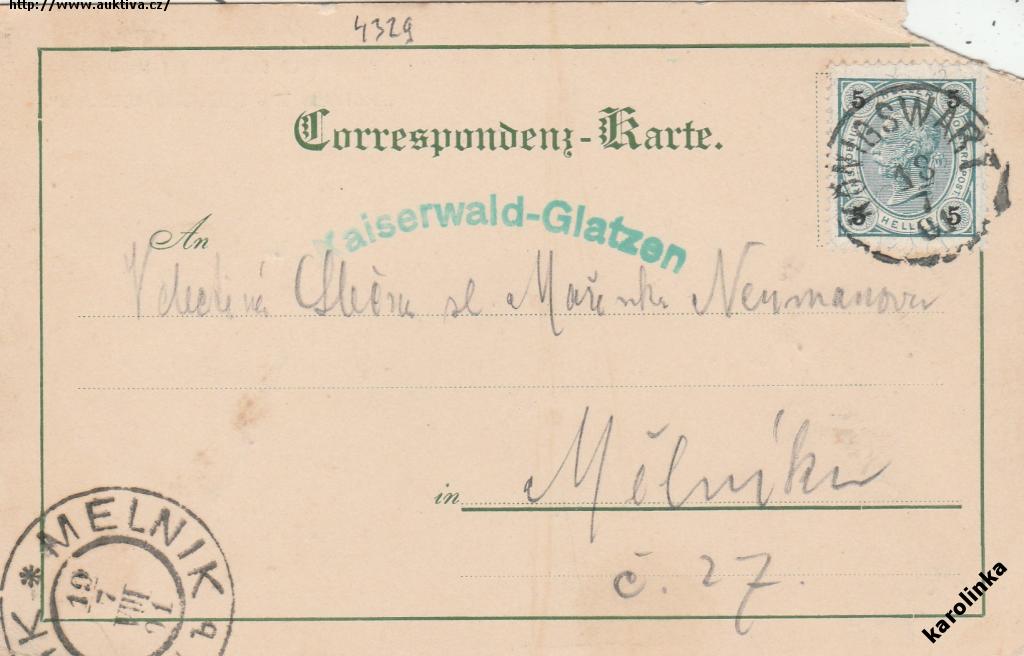 http://www.auktiva.cz/
4329
Correspondenz-Karte.
5 5
KÖNIGSWART
18
7
HELLER
5 5
Kaiserwald-Glatzen
An
Slečna sl Mařenka Neumanova
in Mělníku
č. 27.
MELNIK
19
7
VIII
karolinka